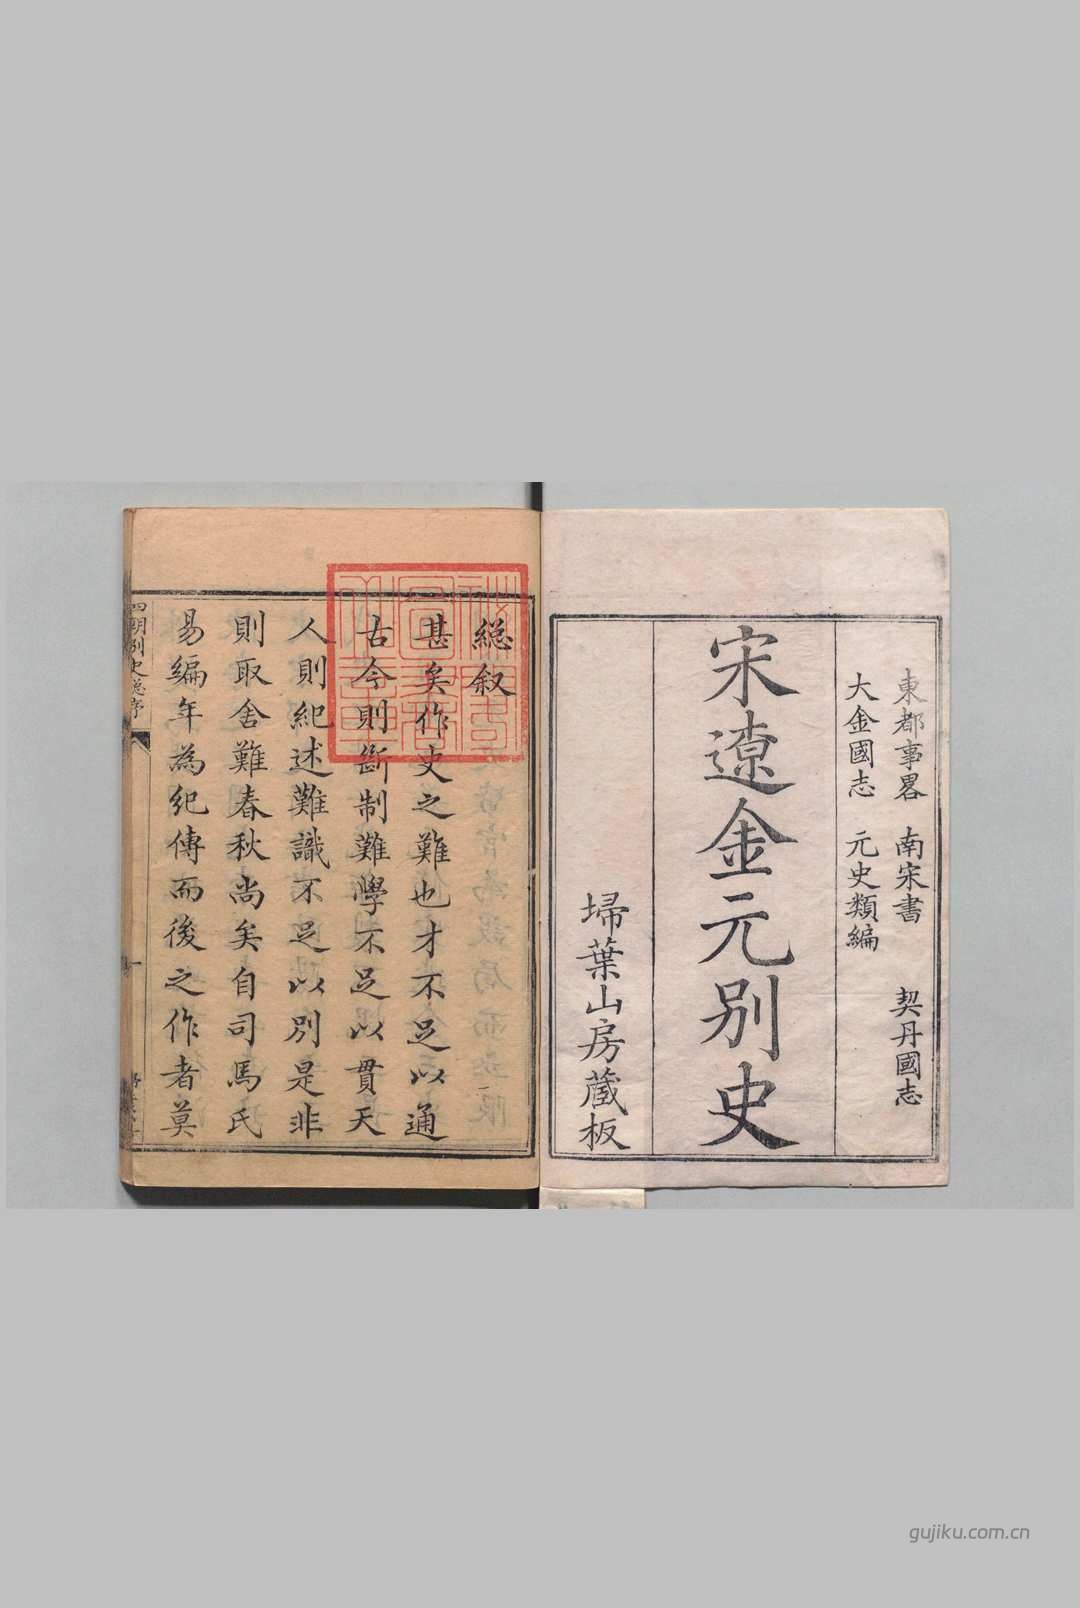 東都事畧 南宋書 契丹國志
大金國志 元史類編
宋遼金元別史
埽葉山房藏板
総叙
甚矣作史之難也才不足以通
古今則斷制難學不足以貫天
人則紀述難識不足以別是非
則取舍難春秋尚矣自司馬氏
易編年為紀傳而後之作者莫
四朝別史總序
一
gujiku.com.cn